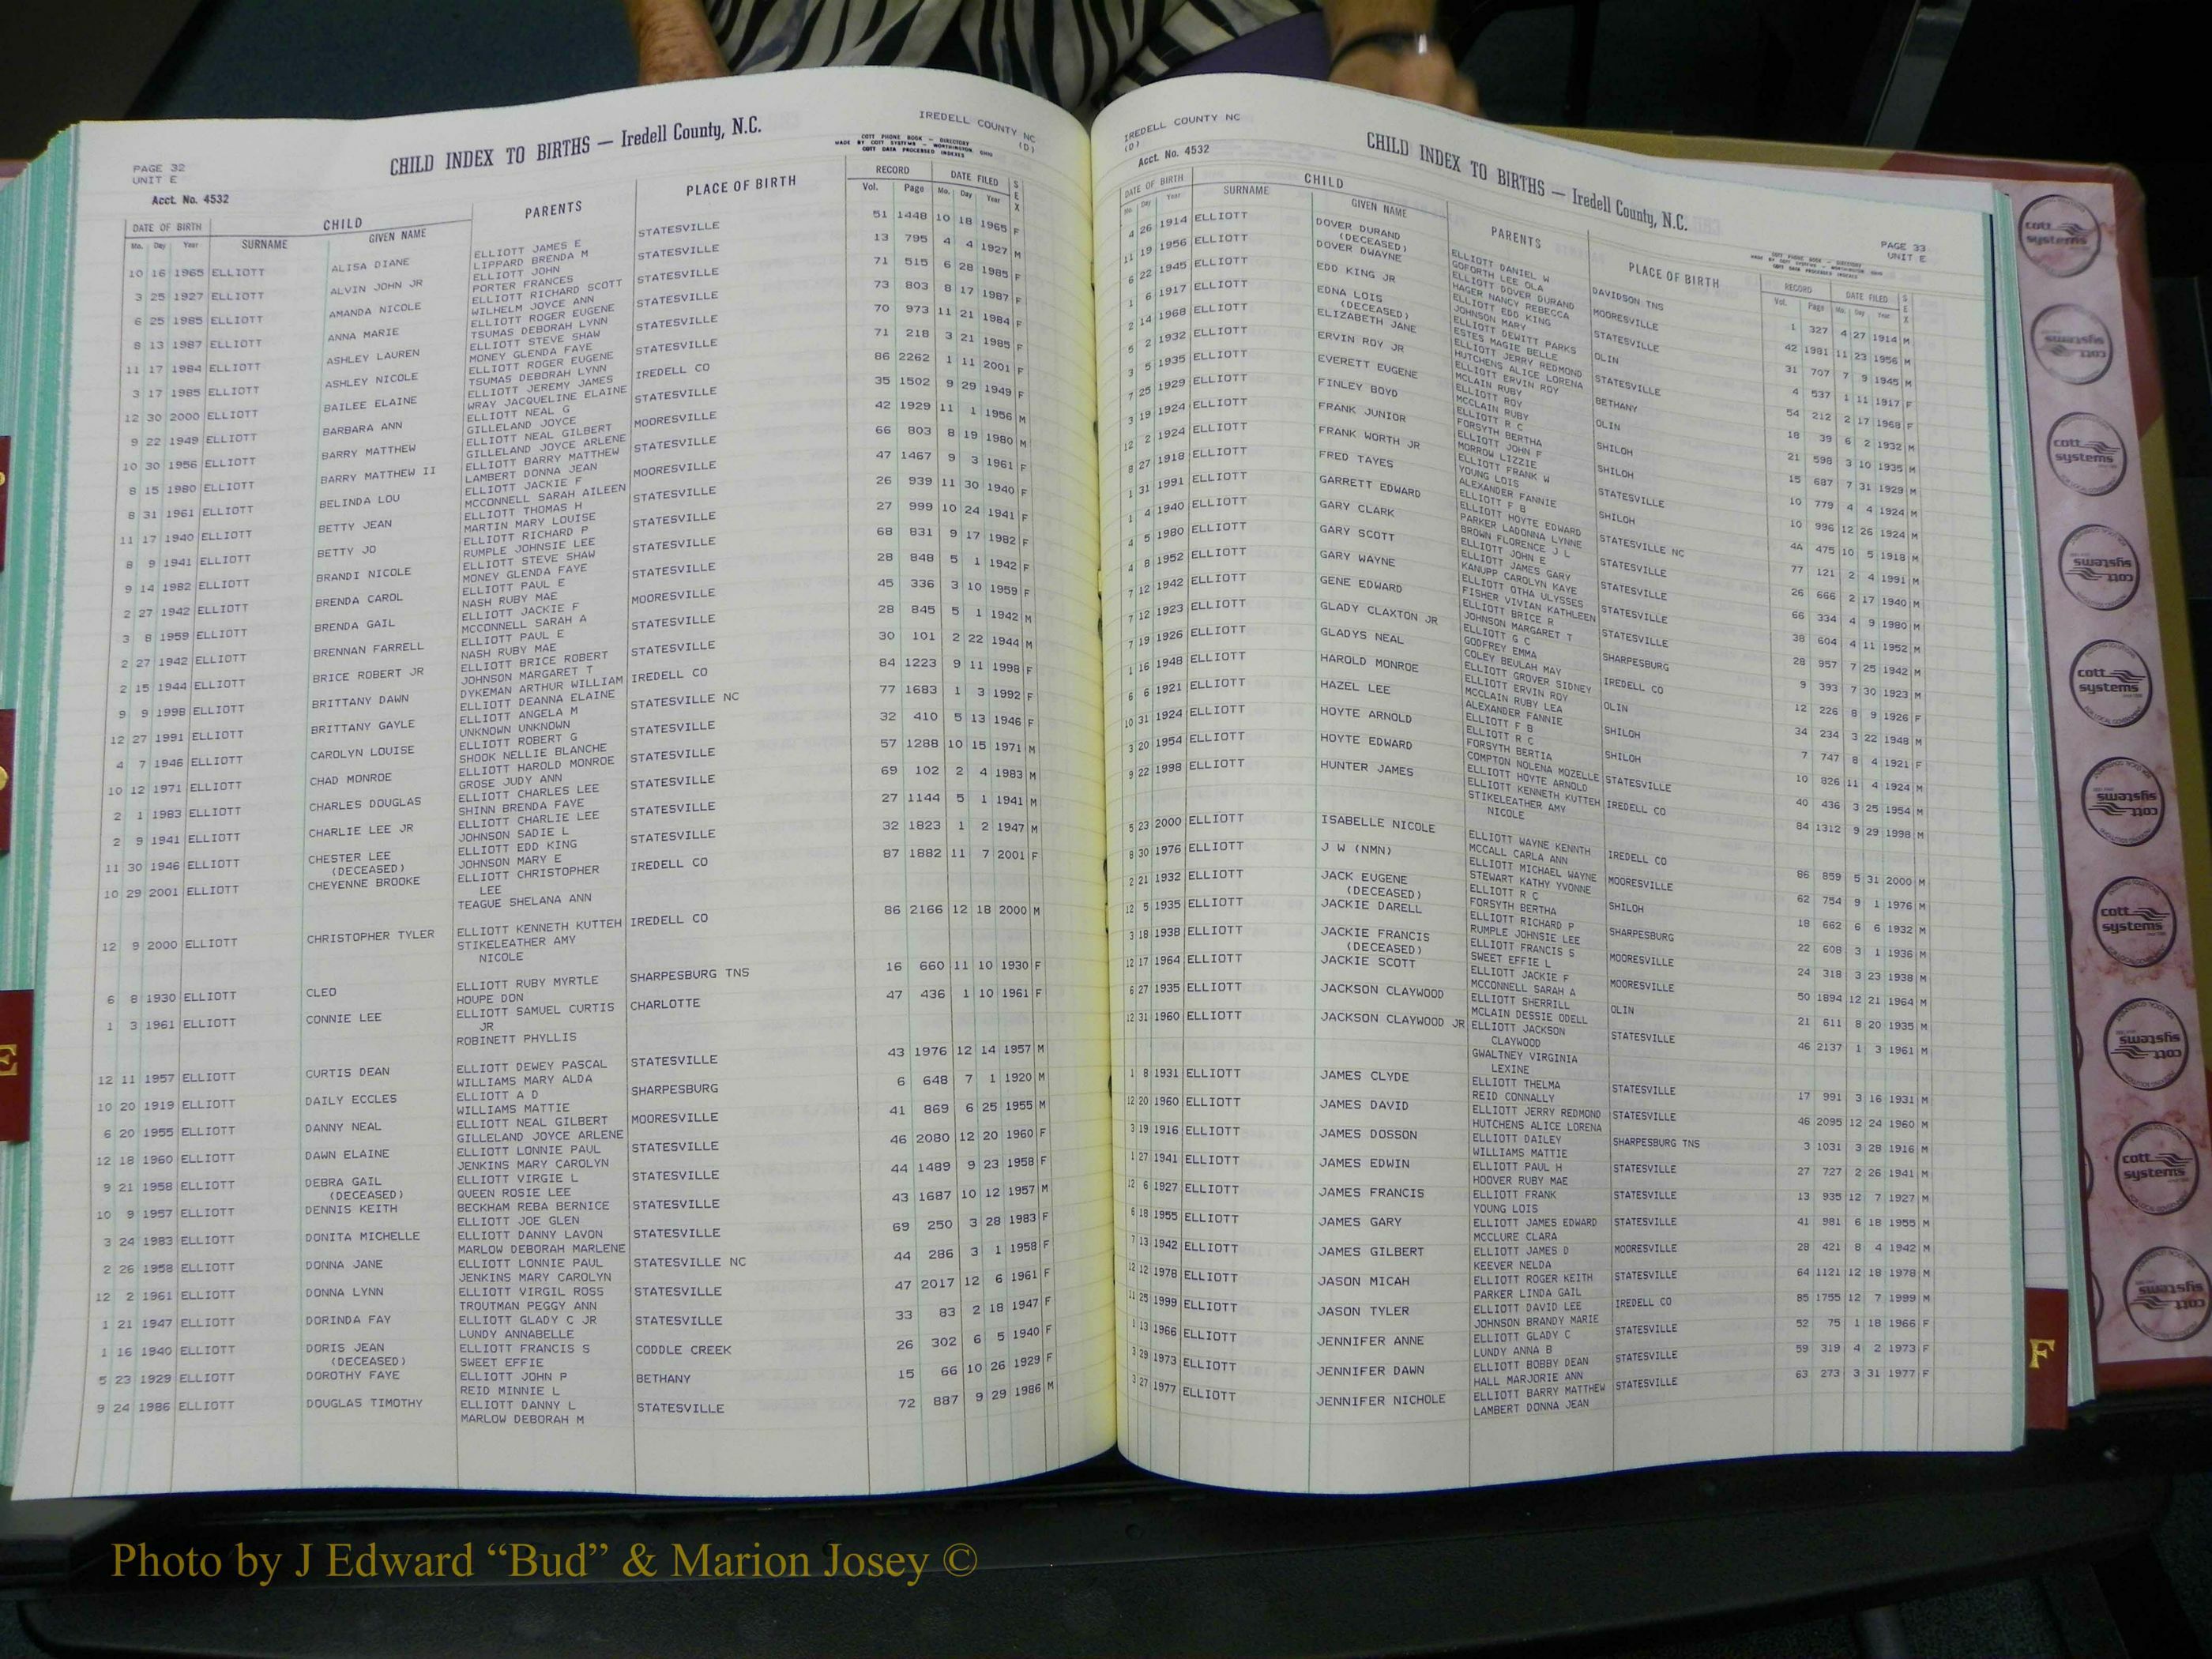 PAGE 32
UNIT E
Acct. No. 4532
CHILD INDEX TO BIRTHS — Iredell County, N.C.
IREDELL COUNTY NC
(D)
COTT PHONE BOOK — DIRECTORY
MADE BY COTT SYSTEMS — WORTHINGTON, OHIO
COTT DATA PROCESSED INDEXES
DATE OF BIRTH CHILD PARENTS PLACE OF BIRTH RECORD DATE FILED SEX
Mo. Day Year SURNAME GIVEN NAME Vol. Page Mo. Day Year
10 16 1965 ELLIOTT ALISA DIANE ELLIOTT JAMES E STATESVILLE 51 1448 10 18 1965 F
LIPPARD BRENDA M
3 25 1927 ELLIOTT ALVIN JOHN JR ELLIOTT JOHN STATESVILLE 13 795 4 4 1927 M
PORTER FRANCES
6 25 1985 ELLIOTT AMANDA NICOLE ELLIOTT RICHARD SCOTT STATESVILLE 71 515 6 28 1985 F
WILHELM JOYCE ANN
8 13 1987 ELLIOTT ANNA MARIE ELLIOTT ROGER EUGENE STATESVILLE 73 803 8 17 1987 F
TSUMAS DEBORAH LYNN
11 17 1984 ELLIOTT ASHLEY LAUREN ELLIOTT STEVE SHAW STATESVILLE 70 973 11 21 1984 F
MONEY GLENDA FAYE
3 17 1985 ELLIOTT ASHLEY NICOLE ELLIOTT ROGER EUGENE STATESVILLE 71 218 3 21 1985 F
TSUMAS DEBORAH LYNN
12 30 2000 ELLIOTT BAILEE ELAINE ELLIOTT JEREMY JAMES IREDELL CO 86 2262 1 11 2001 F
WRAY JACQUELINE ELAINE
9 22 1949 ELLIOTT BARBARA ANN ELLIOTT NEAL G STATESVILLE 35 1502 9 29 1949 F
GILLELAND JOYCE
10 30 1956 ELLIOTT BARRY MATTHEW ELLIOTT NEAL GILBERT MOORESVILLE 42 1929 11 1 1956 M
GILLELAND JOYCE ARLENE
8 15 1980 ELLIOTT BARRY MATTHEW II ELLIOTT BARRY MATTHEW STATESVILLE 66 803 8 19 1980 M
LAMBERT DONNA JEAN
8 31 1961 ELLIOTT BELINDA LOU ELLIOTT JACKIE F MOORESVILLE 47 1467 9 3 1961 F
MCCONNELL SARAH AILEEN
11 17 1940 ELLIOTT BETTY JEAN ELLIOTT THOMAS H STATESVILLE 26 939 11 30 1940 F
MARTIN MARY LOUISE
8 9 1941 ELLIOTT BETTY JO ELLIOTT RICHARD P STATESVILLE 27 999 10 24 1941 F
RUMPLE JOHNSIE LEE
9 14 1982 ELLIOTT BRANDI NICOLE ELLIOTT STEVE SHAW STATESVILLE 68 831 9 17 1982 F
MONEY GLENDA FAYE
2 27 1942 ELLIOTT BRENDA CAROL ELLIOTT PAUL E STATESVILLE 28 848 5 1 1942 F
NASH RUBY MAE
3 8 1959 ELLIOTT BRENDA GAIL ELLIOTT JACKIE F MOORESVILLE 45 336 3 10 1959 F
MCCONNELL SARAH A
2 27 1942 ELLIOTT BRENNAN FARRELL ELLIOTT PAUL E STATESVILLE 28 845 5 1 1942 M
NASH RUBY MAE
2 15 1944 ELLIOTT BRICE ROBERT JR ELLIOTT BRICE ROBERT STATESVILLE 30 101 2 22 1944 M
JOHNSON MARGARET T
9 9 1998 ELLIOTT BRITTANY DAWN DYKEMAN ARTHUR WILLIAM IREDELL CO 84 1223 9 11 1998 F
ELLIOTT DEANNA ELAINE
12 27 1991 ELLIOTT BRITTANY GAYLE ELLIOTT ANGELA M STATESVILLE NC 77 1683 1 3 1992 F
UNKNOWN UNKNOWN
4 7 1946 ELLIOTT CAROLYN LOUISE ELLIOTT ROBERT G STATESVILLE 32 410 5 13 1946 F
SHOOK NELLIE BLANCHE
10 12 1971 ELLIOTT CHAD MONROE ELLIOTT HAROLD MONROE STATESVILLE 57 1288 10 15 1971 M
GROSE JUDY ANN
2 1 1983 ELLIOTT CHARLES DOUGLAS ELLIOTT CHARLES LEE STATESVILLE 69 102 2 4 1983 M
SHINN BRENDA FAYE
2 9 1941 ELLIOTT CHARLIE LEE JR ELLIOTT CHARLIE LEE STATESVILLE 27 1144 5 1 1941 M
JOHNSON SADIE L
11 30 1946 ELLIOTT CHESTER LEE ELLIOTT EDD KING STATESVILLE 32 1823 1 2 1947 M
(DECEASED) JOHNSON MARY E
10 29 2001 ELLIOTT CHEYENNE BROOKE ELLIOTT CHRISTOPHER IREDELL CO 87 1882 11 7 2001 F
LEE
TEAGUE SHELANA ANN
12 9 2000 ELLIOTT CHRISTOPHER TYLER ELLIOTT KENNETH KUTTEH IREDELL CO 86 2166 12 18 2000 M
STIKELEATHER AMY
NICOLE
6 8 1930 ELLIOTT CLEO ELLIOTT RUBY MYRTLE SHARPESBURG TNS 16 660 11 10 1930 F
HOUPE DON
1 3 1961 ELLIOTT CONNIE LEE ELLIOTT SAMUEL CURTIS CHARLOTTE 47 436 1 10 1961 F
JR
ROBINETT PHYLLIS
12 11 1957 ELLIOTT CURTIS DEAN ELLIOTT DEWEY PASCAL STATESVILLE 43 1976 12 14 1957 M
WILLIAMS MARY ALDA
10 20 1919 ELLIOTT DAILY ECCLES ELLIOTT A D SHARPESBURG 6 648 7 1 1920 M
WILLIAMS MATTIE
6 20 1955 ELLIOTT DANNY NEAL ELLIOTT NEAL GILBERT MOORESVILLE 41 869 6 25 1955 M
GILLELAND JOYCE ARLENE
12 18 1960 ELLIOTT DAWN ELAINE ELLIOTT LONNIE PAUL STATESVILLE 46 2080 12 20 1960 F
JENKINS MARY CAROLYN
9 21 1958 ELLIOTT DEBRA GAIL ELLIOTT VIRGIE L STATESVILLE 44 1489 9 23 1958 F
(DECEASED) QUEEN ROSIE LEE
10 9 1957 ELLIOTT DENNIS KEITH BECKHAM REBA BERNICE STATESVILLE 43 1687 10 12 1957 M
ELLIOTT JOE GLEN
3 24 1983 ELLIOTT DONITA MICHELLE ELLIOTT DANNY LAVON STATESVILLE 69 250 3 28 1983 F
MARLOW DEBORAH MARLENE
2 26 1958 ELLIOTT DONNA JANE ELLIOTT LONNIE PAUL STATESVILLE NC 44 286 3 1 1958 F
JENKINS MARY CAROLYN
12 2 1961 ELLIOTT DONNA LYNN ELLIOTT VIRGIL ROSS STATESVILLE 47 2017 12 6 1961 F
TROUTMAN PEGGY ANN
1 21 1947 ELLIOTT DORINDA FAY ELLIOTT GLADY C JR STATESVILLE 33 83 2 18 1947 F
LUNDY ANNABELLE
1 16 1940 ELLIOTT DORIS JEAN ELLIOTT FRANCIS S CODDLE CREEK 26 302 6 5 1940 F
(DECEASED) SWEET EFFIE
5 23 1929 ELLIOTT DOROTHY FAYE ELLIOTT JOHN P BETHANY 15 66 10 26 1929 F
REID MINNIE L
9 24 1986 ELLIOTT DOUGLAS TIMOTHY ELLIOTT DANNY L STATESVILLE 72 887 9 29 1986 M
MARLOW DEBORAH M
IREDELL COUNTY NC
(D)
Acct. No. 4532
CHILD INDEX TO BIRTHS — Iredell County, N.C.
PAGE 33
UNIT E
COTT PHONE BOOK — DIRECTORY
MADE BY COTT SYSTEMS — WORTHINGTON, OHIO
COTT DATA PROCESSED INDEXES
DATE OF BIRTH CHILD PARENTS PLACE OF BIRTH RECORD DATE FILED SEX
Mo. Day Year SURNAME GIVEN NAME Vol. Page Mo. Day Year
4 26 1914 ELLIOTT DOVER DURAND ELLIOTT DANIEL W DAVIDSON TNS 1 327 4 27 1914 M
(DECEASED) GOFORTH LEE OLA
11 19 1956 ELLIOTT DOVER DWAYNE ELLIOTT DOVER DURAND MOORESVILLE 42 1981 11 23 1956 M
HAGER NANCY REBECCA
6 22 1945 ELLIOTT EDD KING JR ELLIOTT EDD KING STATESVILLE 31 707 7 9 1945 M
JOHNSON MARY
1 6 1917 ELLIOTT EDNA LOIS ELLIOTT DEWITT PARKS OLIN 4 537 1 11 1917 F
(DECEASED) ESTES MAGIE BELLE
2 14 1968 ELLIOTT ELIZABETH JANE ELLIOTT JERRY REDMOND STATESVILLE 54 212 2 17 1968 F
HUTCHENS ALICE LORENA
5 2 1932 ELLIOTT ERVIN ROY JR ELLIOTT ERVIN ROY BETHANY 18 39 6 2 1932 M
MCLAIN RUBY
3 5 1935 ELLIOTT EVERETT EUGENE ELLIOTT ROY OLIN 21 598 3 10 1935 M
MCCLAIN RUBY
7 25 1929 ELLIOTT FINLEY BOYD ELLIOTT R C SHILOH 15 687 7 31 1929 M
FORSYTH BERTHA
3 19 1924 ELLIOTT FRANK JUNIOR ELLIOTT JOHN F SHILOH 10 779 4 4 1924 M
MORROW LIZZIE
12 2 1924 ELLIOTT FRANK WORTH JR ELLIOTT FRANK W STATESVILLE 10 996 12 26 1924 M
YOUNG LOIS
8 27 1918 ELLIOTT FRED TAYES ALEXANDER FANNIE SHILOH 4A 475 10 5 1918 M
ELLIOTT F B
1 31 1991 ELLIOTT GARRETT EDWARD ELLIOTT HOYTE EDWARD STATESVILLE NC 77 121 2 4 1991 M
PARKER LADONNA LYNNE
1 4 1940 ELLIOTT GARY CLARK BROWN FLORENCE J L STATESVILLE 26 666 2 17 1940 M
ELLIOTT JOHN E
4 5 1980 ELLIOTT GARY SCOTT ELLIOTT JAMES GARY STATESVILLE 66 334 4 9 1980 M
KANUPP CAROLYN KAYE
4 8 1952 ELLIOTT GARY WAYNE ELLIOTT OTHA ULYSSES STATESVILLE 38 604 4 11 1952 M
FISHER VIVIAN KATHLEEN
7 12 1942 ELLIOTT GENE EDWARD ELLIOTT BRICE R 28 957 7 25 1942 M
JOHNSON MARGARET T
7 12 1923 ELLIOTT GLADY CLAXTON JR ELLIOTT G C SHARPESBURG 9 393 7 30 1923 M
GODFREY EMMA
7 19 1926 ELLIOTT GLADYS NEAL COLEY BEULAH MAY IREDELL CO 12 226 8 9 1926 F
ELLIOTT GROVER SIDNEY
1 16 1948 ELLIOTT HAROLD MONROE ELLIOTT ERVIN ROY OLIN 34 234 3 22 1948 M
MCCLAIN RUBY LEA
6 6 1921 ELLIOTT HAZEL LEE ALEXANDER FANNIE SHILOH 7 747 8 4 1921 F
ELLIOTT F B
10 31 1924 ELLIOTT HOYTE ARNOLD ELLIOTT R C SHILOH 10 826 11 4 1924 M
FORSYTH BERTIA
3 20 1954 ELLIOTT HOYTE EDWARD COMPTON NOLENA MOZELLE STATESVILLE 40 436 3 25 1954 M
ELLIOTT HOYTE ARNOLD
9 22 1998 ELLIOTT HUNTER JAMES ELLIOTT KENNETH KUTTEH IREDELL CO 84 1312 9 29 1998 M
STIKELEATHER AMY
NICOLE
5 23 2000 ELLIOTT ISABELLE NICOLE ELLIOTT WAYNE KENNTH IREDELL CO 86 859 5 31 2000 M
MCCALL CARLA ANN
8 30 1976 ELLIOTT J W (NMN) ELLIOTT MICHAEL WAYNE MOORESVILLE 62 754 9 1 1976 M
STEWART KATHY YVONNE
2 21 1932 ELLIOTT JACK EUGENE ELLIOTT R C SHILOH 18 662 6 6 1932 M
(DECEASED) FORSYTH BERTHA
12 5 1935 ELLIOTT JACKIE DARELL ELLIOTT RICHARD P SHARPESBURG 22 608 3 1 1936 M
RUMPLE JOHNSIE LEE
3 18 1938 ELLIOTT JACKIE FRANCIS ELLIOTT FRANCIS S MOORESVILLE 24 318 3 23 1938 M
(DECEASED) SWEET EFFIE L
12 17 1964 ELLIOTT JACKIE SCOTT ELLIOTT JACKIE F MOORESVILLE 50 1894 12 21 1964 M
MCCONNELL SARAH A
6 27 1935 ELLIOTT JACKSON CLAYWOOD ELLIOTT SHERRILL OLIN 21 611 8 20 1935 M
MCLAIN DESSIE ODELL
12 31 1960 ELLIOTT JACKSON CLAYWOOD JR ELLIOTT JACKSON STATESVILLE 46 2137 1 3 1961 M
CLAYWOOD
GWALTNEY VIRGINIA
LEXINE
1 8 1931 ELLIOTT JAMES CLYDE ELLIOTT THELMA STATESVILLE 17 991 3 16 1931 M
REID CONNALLY
12 20 1960 ELLIOTT JAMES DAVID ELLIOTT JERRY REDMOND STATESVILLE 46 2095 12 24 1960 M
HUTCHENS ALICE LORENA
3 19 1916 ELLIOTT JAMES DOSSON ELLIOTT DAILEY SHARPESBURG TNS 3 1031 3 28 1916 M
WILLIAMS MATTIE
1 27 1941 ELLIOTT JAMES EDWIN ELLIOTT PAUL H STATESVILLE 27 727 2 26 1941 M
HOOVER RUBY MAE
12 6 1927 ELLIOTT JAMES FRANCIS ELLIOTT FRANK STATESVILLE 13 935 12 7 1927 M
YOUNG LOIS
6 18 1955 ELLIOTT JAMES GARY ELLIOTT JAMES EDWARD STATESVILLE 41 981 6 18 1955 M
MCCLURE CLARA
7 13 1942 ELLIOTT JAMES GILBERT ELLIOTT JAMES D MOORESVILLE 28 421 8 4 1942 M
KEEVER NELDA
12 12 1978 ELLIOTT JASON MICAH ELLIOTT ROGER KEITH STATESVILLE 64 1121 12 18 1978 M
PARKER LINDA GAIL
11 25 1999 ELLIOTT JASON TYLER ELLIOTT DAVID LEE IREDELL CO 85 1755 12 7 1999 M
JOHNSON BRANDY MARIE
1 13 1966 ELLIOTT JENNIFER ANNE ELLIOTT GLADY C STATESVILLE 52 75 1 18 1966 F
LUNDY ANNA B
3 29 1973 ELLIOTT JENNIFER DAWN ELLIOTT BOBBY DEAN STATESVILLE 59 319 4 2 1973 F
HALL MARJORIE ANN
3 27 1977 ELLIOTT JENNIFER NICHOLE ELLIOTT BARRY MATTHEW STATESVILLE 63 273 3 31 1977 F
LAMBERT DONNA JEAN
E
F
cott systems
cott systems
cott systems
cott systems
cott systems
cott systems
cott systems
cott systems
cott systems
cott systems
Photo by J Edward “Bud” & Marion Josey ©